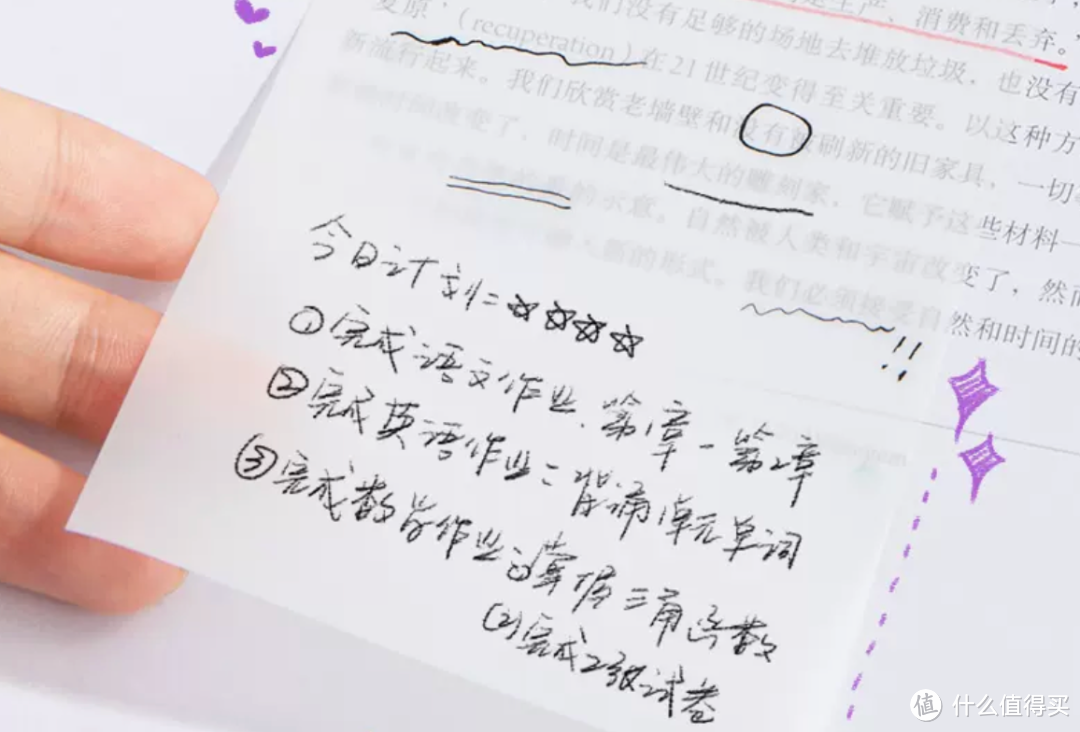 是生产、消费和丢弃。
复原'（recuperation）我们没有足够的场地去堆放垃圾，也没有
新流行起来。在21世纪变得至关重要。以这种方
我们欣赏老墙壁和没有被刷新的旧家具，一切
时间改变了，时间是最伟大的雕刻家，它赋予这些材料一
的示意。自然被人类和宇宙改变了，然而
的形式。我们必须接受自然和时间的
!!
今日计划:☆☆☆☆
①完成语文作业.第1章-第2章
②完成英语作业:背诵1单元单词
③完成数学作业:(1)掌握三角函数
(2)完成2张试卷
值 什么值得买